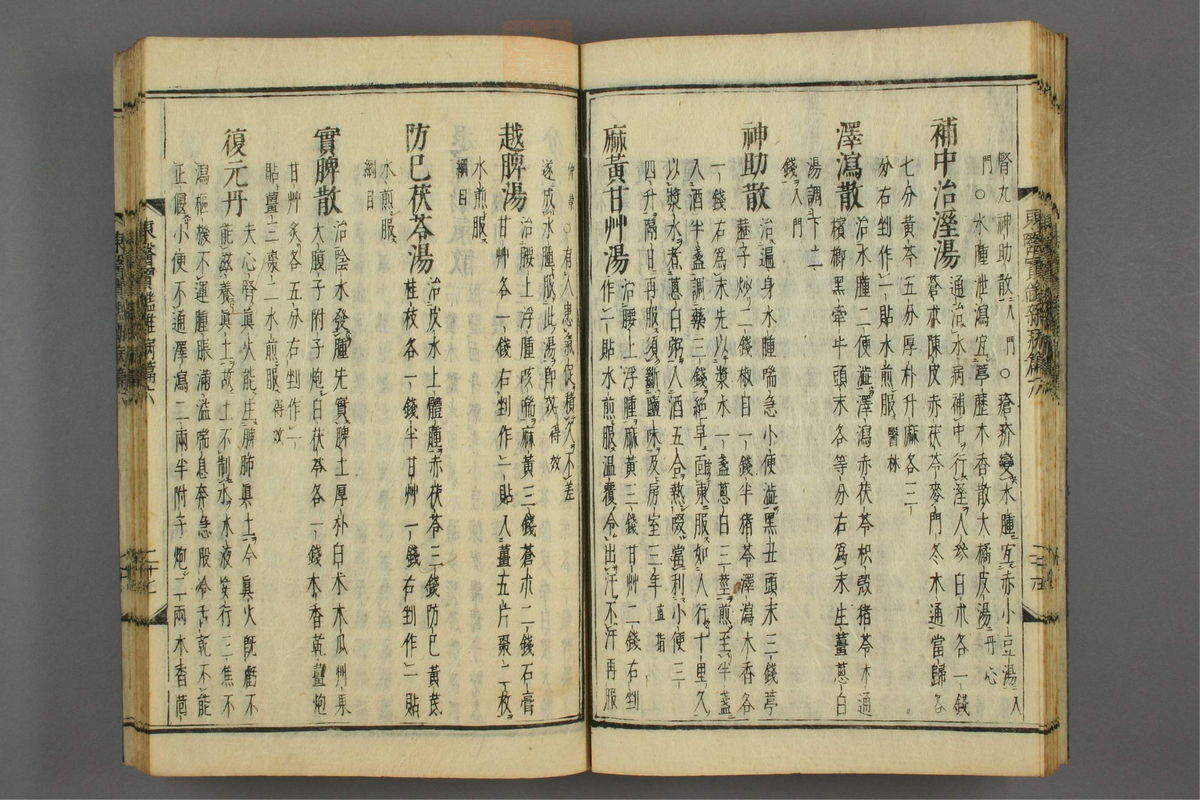 腎丸神助散入門○瘡疥變水腫宜赤小豆湯入
門○水腫泄瀉宜葶藶木香散大橘皮湯丹心
補中治溼湯
通治水病補中行溼人參白朮各一錢
蒼朮陳皮赤茯苓麥門冬木通當歸各
七分黃芩五分厚朴升麻各三
分右剉作一貼水煎服醫林
澤瀉散
治水腫二便澁澤瀉赤茯苓枳殼猪苓木通
檳榔黑牽牛頭末各等分右爲末生薑葱白
湯調下二
錢入門
神助散
治遍身水腫喘急小便澁黑丑頭末三錢葶
藶子炒二錢椒目一錢半猪苓澤瀉木香各
一錢右爲末先以漿水一盞葱白三莖煎至半盞
入酒半盞調藥三錢絶早面東服如人行十里久
以漿水煮葱白粥入酒五合熱啜當利小便三
四升隔日再服須斷鹽味及房室三年直指
麻黃甘艸湯
治腰上浮腫麻黃三錢甘艸二錢右剉
作一貼水煎服温覆令出汗不汗再服
仲景○有人患氣促積久不差
遂成水腫服此湯卽效得效
越脾湯
治腰上浮腫咳喘麻黃三錢蒼朮二錢石膏
甘艸各一錢右剉作一貼入薑五片棗二枚
水煎服
綱目
防巳茯苓湯
治皮水土體腫赤茯苓三錢防巳黃芪
桂枝各一錢半甘艸一錢右剉作一貼
水煎服
綱目
實脾散
治陰水發腫先實脾土厚朴白朮木瓜艸果
大腹子附子炮白茯苓各一錢木香乾薑炮
甘艸炙各五分右剉作一
貼薑三棗二水煎服得效
復元丹
夫心腎眞火能生脾肺眞土今眞火旣虧不
能滋養眞土故土不制水水液妄行三焦不
瀉樞機不運腫脹滿溢喘息奔急股冷舌乾不能
正偃小便不通澤瀉二兩半附子炮二兩木香茴